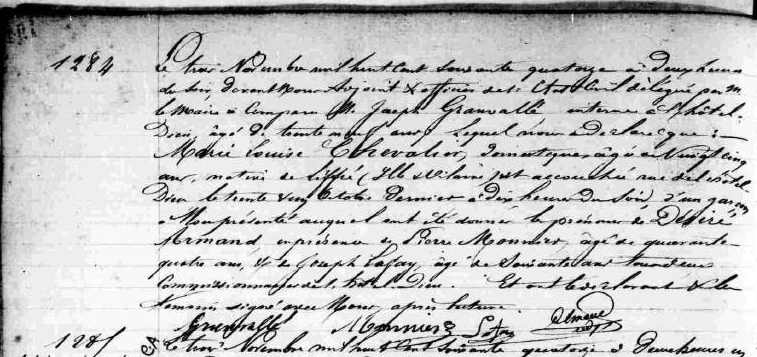 1284
Le trois Novembre mil huit cent soixante quatorze à deux heures
du soir, devant Nous Adjoint & officier de l'Etat Civil délégué par M.
le Maire a Comparu M. Joseph Granvallé interne à l'hôtel-
Dieu, âgé de trente neuf ans, lequel nous a déclaré que :
Marie Louise Chevalier, domestique, âgée de Vingt cinq
ans, native de Liffré (Ille & Vilaine) est accouchée rue de l'hôtel
Dieu le trente & un Octobre dernier à dix heures du Soir, d'un garçon
à Nous présenté auquel ont été donnés les prénoms de Désiré
Armand, en présence de Pierre Monnier, âgé de quarante
quatre ans, & de Joseph Lafay, âgé de Soixante ans tous deux
Commissionnaires de l'hôtel-Dieu. Et ont le déclarant & les
témoins signé avec Nous, après lecture.
Granvallé Monnier
1285
Le trois Novembre mil huit Cent soixante quatorze à deux heures